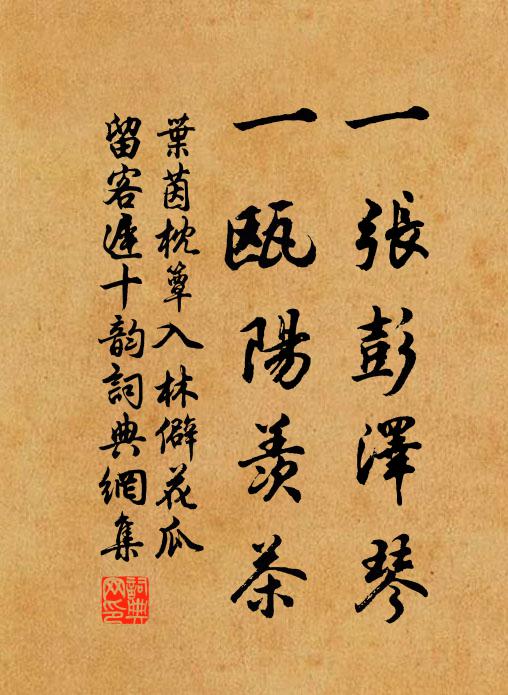 一張彭澤琴
一甌陽羨茶
葉茵枕簟入林僻花瓜
留客遲十韵詞典網集
詞典网印